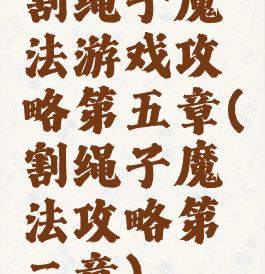 割绳子魔
法游戏攻
略第五章(
割绳子魔
法攻略第
二章)